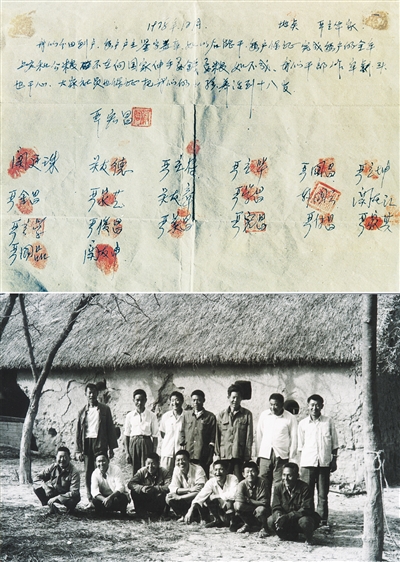 1978年12月 地点 严立华家
我们分田到户,每户户主签字盖章,如以后能干,每户保证完成每户的全年
上交和公粮,不在向国家伸手要钱要粮,如不成,我们干部作牢刹头
也干心,大家社员也保证把我们的小孩养活到十八岁
严宏昌
关廷珠 关友德 严立符 严立华 严国昌 严立坤
严金昌 严家芝 关友章 严学昌 韩国云 关友江
严立学 严俊昌 严美昌 严宏昌 严付昌 严家其
严国品 关友申